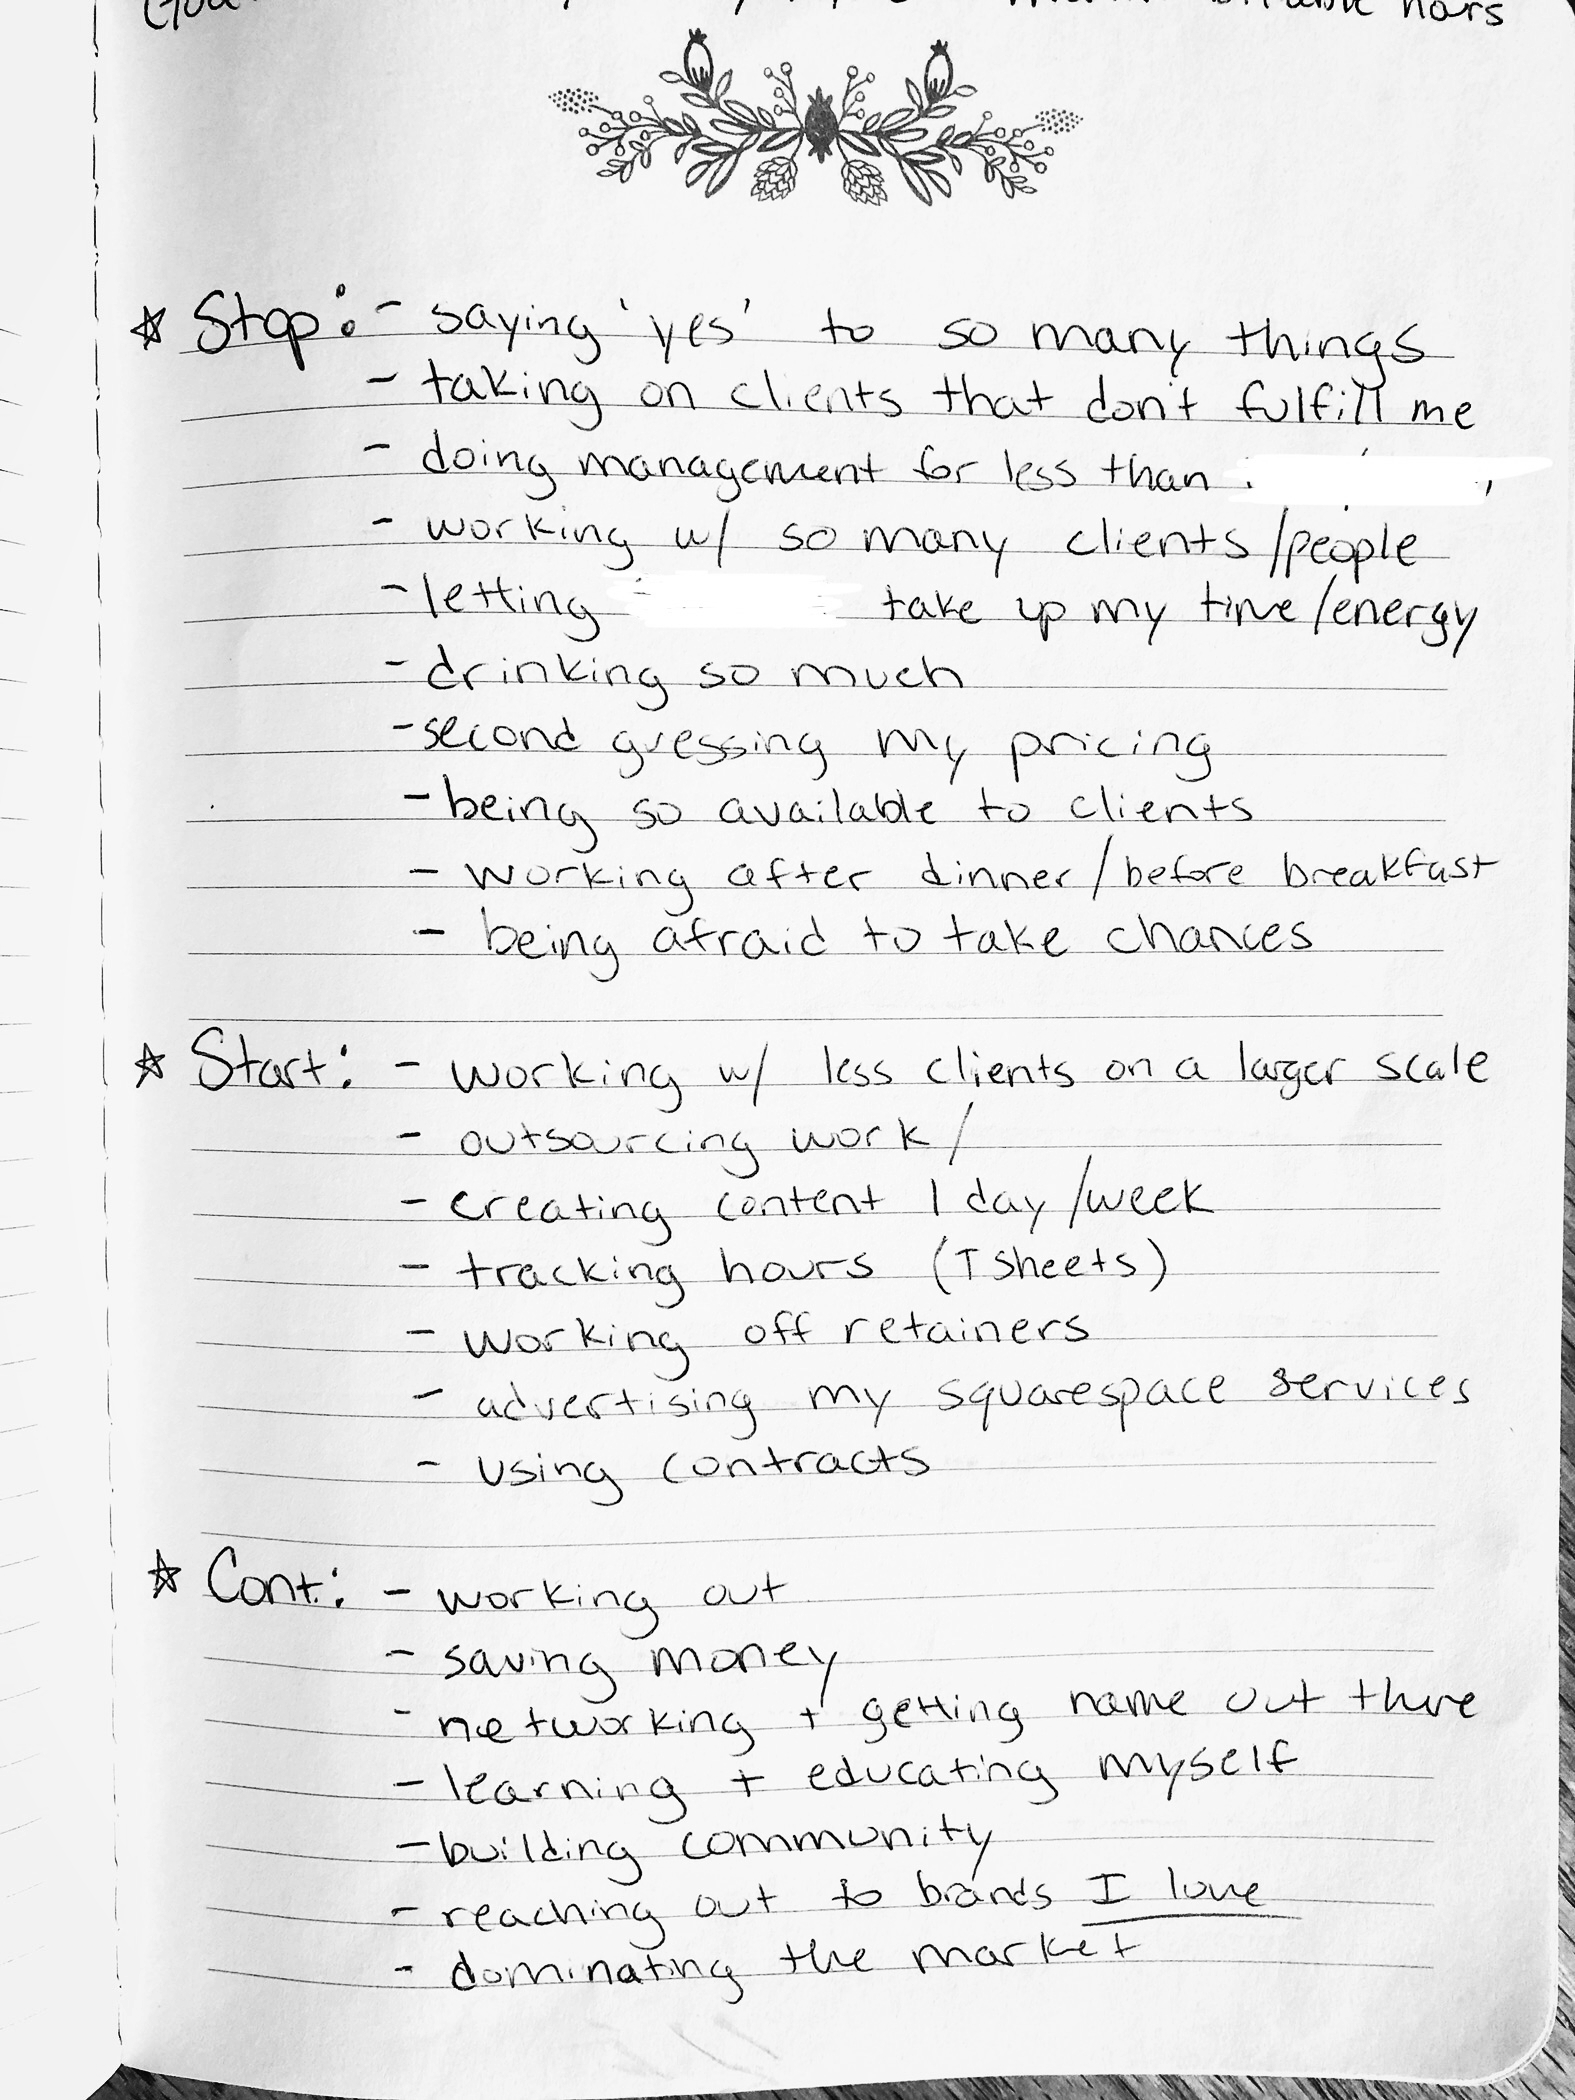 hors
☆ Stop: - saying 'yes' to so many things
- taking on clients that don't fulfill me
- doing management for less than
- working w/ so many clients/people
- letting take up my time/energy
- drinking so much
- second guessing my pricing
- being so available to clients
- working after dinner/before breakfast
- being afraid to take chances
☆ Start: - working w/ less clients on a larger scale
- outsourcing work/
- creating content 1 day/week
- tracking hours (T sheets)
- working off retainers
- advertising my squarespace services
- using contracts
☆ Cont: - working out
- saving money
- networking + getting name out there
- learning + educating myself
- building community
- reaching out to brands I love
- dominating the market